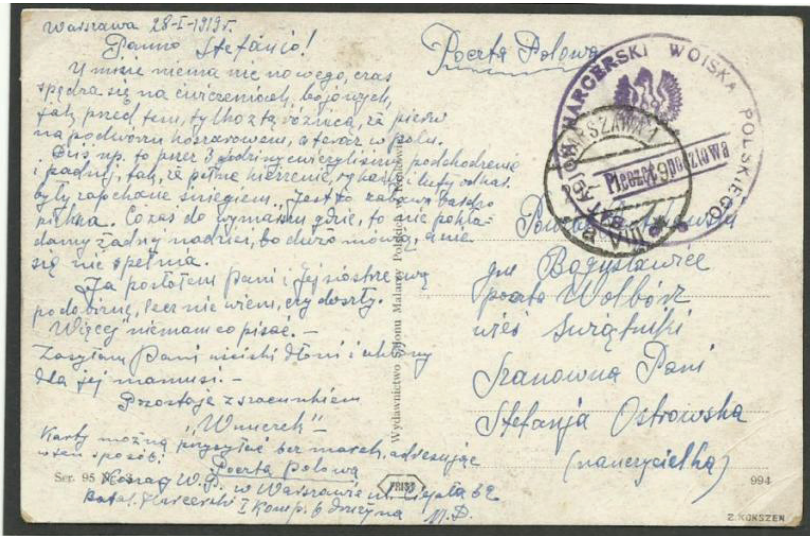 Warszawa 28-I-1919r.
Panno Stefanio!
U mnie niema nic nowego, czas
spędza się na ćwiczeniach bojowych,
jak przed tem, tylko z tą różnicą, że pierw
na podwórzu koszarowem, a teraz w polu.
Dziś np. to przez 3 godziny ćwiczyliśmy podchodzenie
i padnij, tak, że pełne kieszenie, rękawy i buty
były zapchane śniegiem. Jest to zabawa bardzo
Co zaś do wymarszu gdzie, to nie pokła-
damy żadnej nadziei, bo dużo mówią, a nic
się nie spełnia.
Ja posłałem Pani i Jej siostrze swą
podobiznę, lecz nie wiem, czy doszły.
Więcej niemam co pisać. –
Zasyłam Pani uściski dłoni i ukłony
dla Jej mamusi. –
Pozostaję z szacunkiem
Karty można przysyłać bez marek, adresując
w ten sposób: Poczta polowa
W.P. w Warszawie ul. Ciepła 32
Batal. Harcerski I Komp. 6 drużyna M.D.
Ser. 95
Wydawnictwo Salonu Malarzy Polskich w Krakowie
Poczta Polowa
HARCERSKI WOJSKA POLSKIEGO
WARSZAWA 1
Pieczęć podziałowa
gm Bogusławice
poczta Wolbórz
wieś Świątniki
Szanowna Pani
Stefanja Ostrowska
(nauczycielka)
994
Z.KOKSZEN